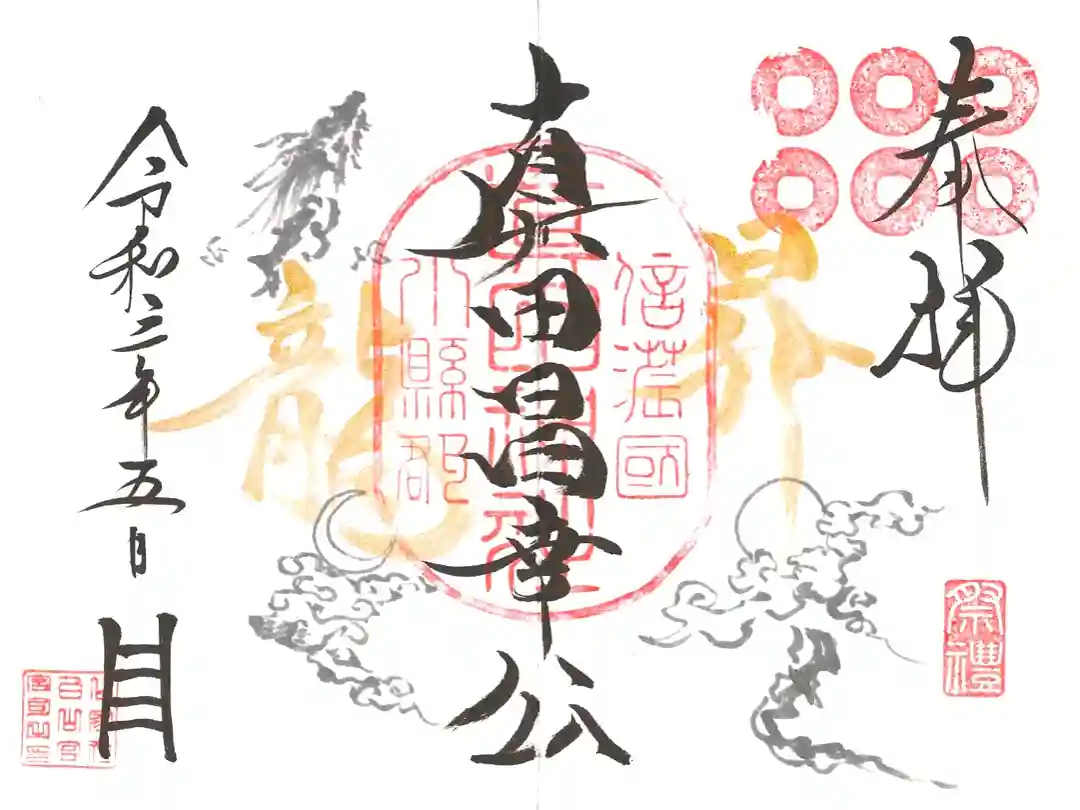 奉拝
祭禮
昇龍
信濃國
真田神社
小縣郡
真田昌幸公
令和三年五月